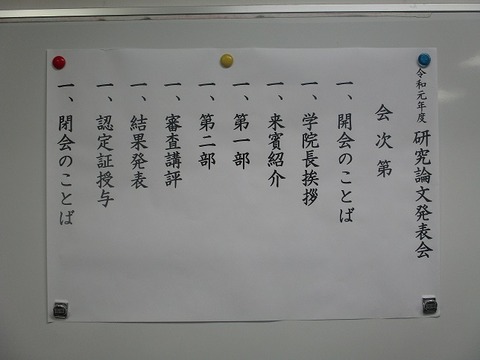 令和元年度 研究論文発表会
会次第
一、開会のことば
一、学院長挨拶
一、来賓紹介
一、第一部
一、第二部
一、審査講評
一、結果発表
一、認定証授与
一、閉会のことば